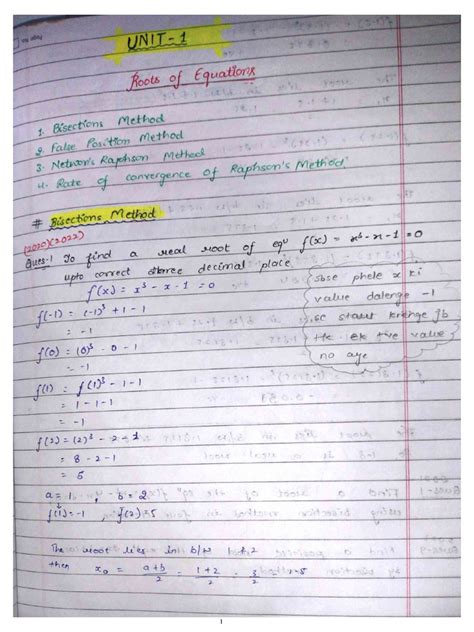 UNIT-1
Roots of Equations
1. Bisections Method
2. False Position Method
3. Netwon's Raphson Method
4. Rate of convergence of Raphson's Method
# Bisections Method
(2020)(2022)
Ques-1 To find a real root of eqⁿ f(x) = x³-x-1=0
upto correct three decimal place.
f(x) = x³-x-1=0
sbse phele x ki
value dalenge -1
se start krenge jb
tk ek +ve value
no aye
f(-1) = (-1)³+1-1
= -1
f(0) = (0)³-0-1
= -1
f(1) = f(1)³-1-1
= 1-1-1
= -1
f(2) = (2)³-2-1
= 8-2-1
= 5
a=1, b=2
f(1)=-1, f(2)=5
The root lies in b/w 1&2
then x₀ = a+b/2 = 1+2/2 = 3/2 = 1.5
1